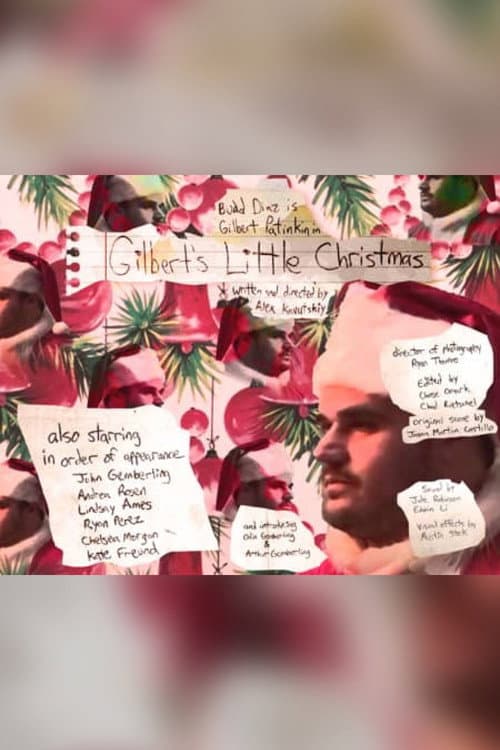 Budd Diaz is
Gilbert Patinkin in
Gilbert's Little Christmas
* written and directed by
Alex Kavutskiy
director of photography
Ryan Thomas
Edited by
Chad
original score by
Juan Martin Castillo
also starring
in order of appearance
John Gemberling
Andrea Rosen
Lindsay Ames
Ryan Perez
Chelsea Morgan
Kate Freund
and introducing
Gemberling
&
Arthur Gemberling
Sound by
Robinson
Edwin Li
Visual effects by